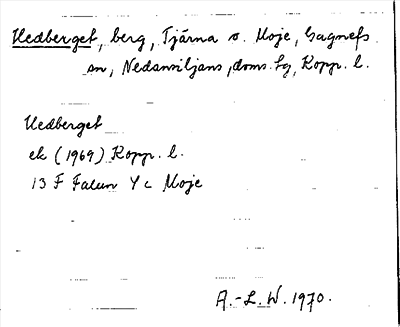 Hedberget, berg, Tjärna o. Moje, Gagnefs
sn, Nedansiljans doms.tg, Kopp. l.
Hedberget
ek (1969) Kopp. l.
13 F Falun Y c Moje
A.-L. W. 1970.